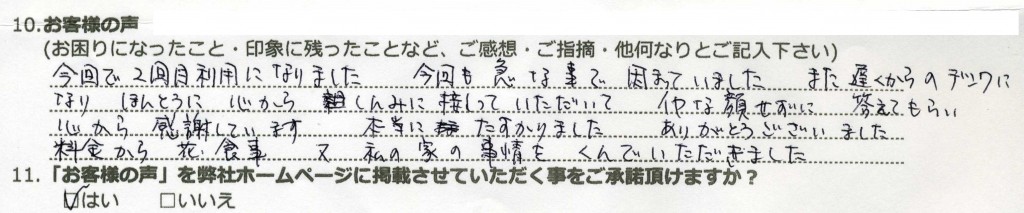 10.お客様の声
(お困りになったこと・印象に残ったことなど、ご感想・ご指摘・他何なりとご記入下さい)
今回で2回目利用になりました 今回も急な事で困まっていました また遅くからのデンワに
なり ほんとうに 心から 親しんみに接して いただいいて イヤな顔せずに 答えてもらい
心から 感謝しています 本当に たすかりました ありがとうございい ました
料金から 花、食事 又 私の家の事情を くんでいただきました
11.「お客様の声」を弊社ホームページに掲載させていただく事をご承諾頂けますか？
☑はい □いいえ